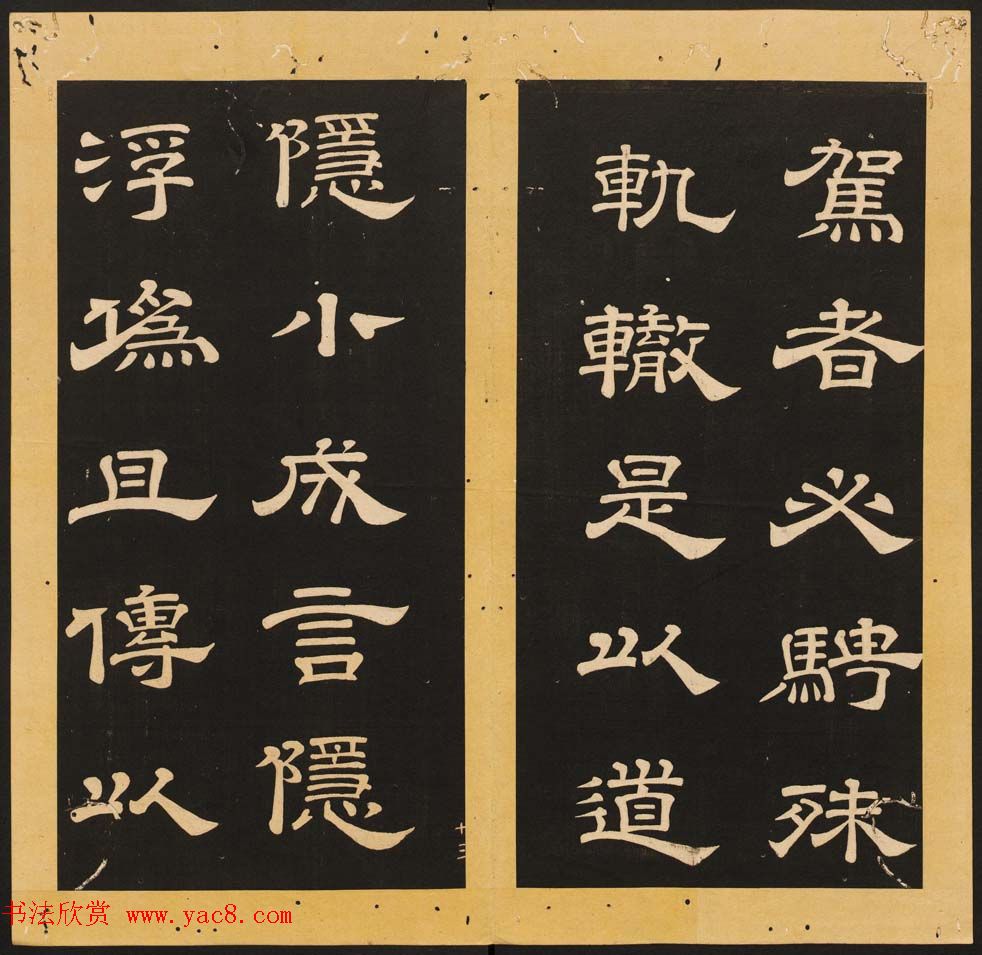 駕者必騁殊
軌轍是以道
隱小成言隱
浮偽且傳以
十三
书法欣赏 www.yac8.com